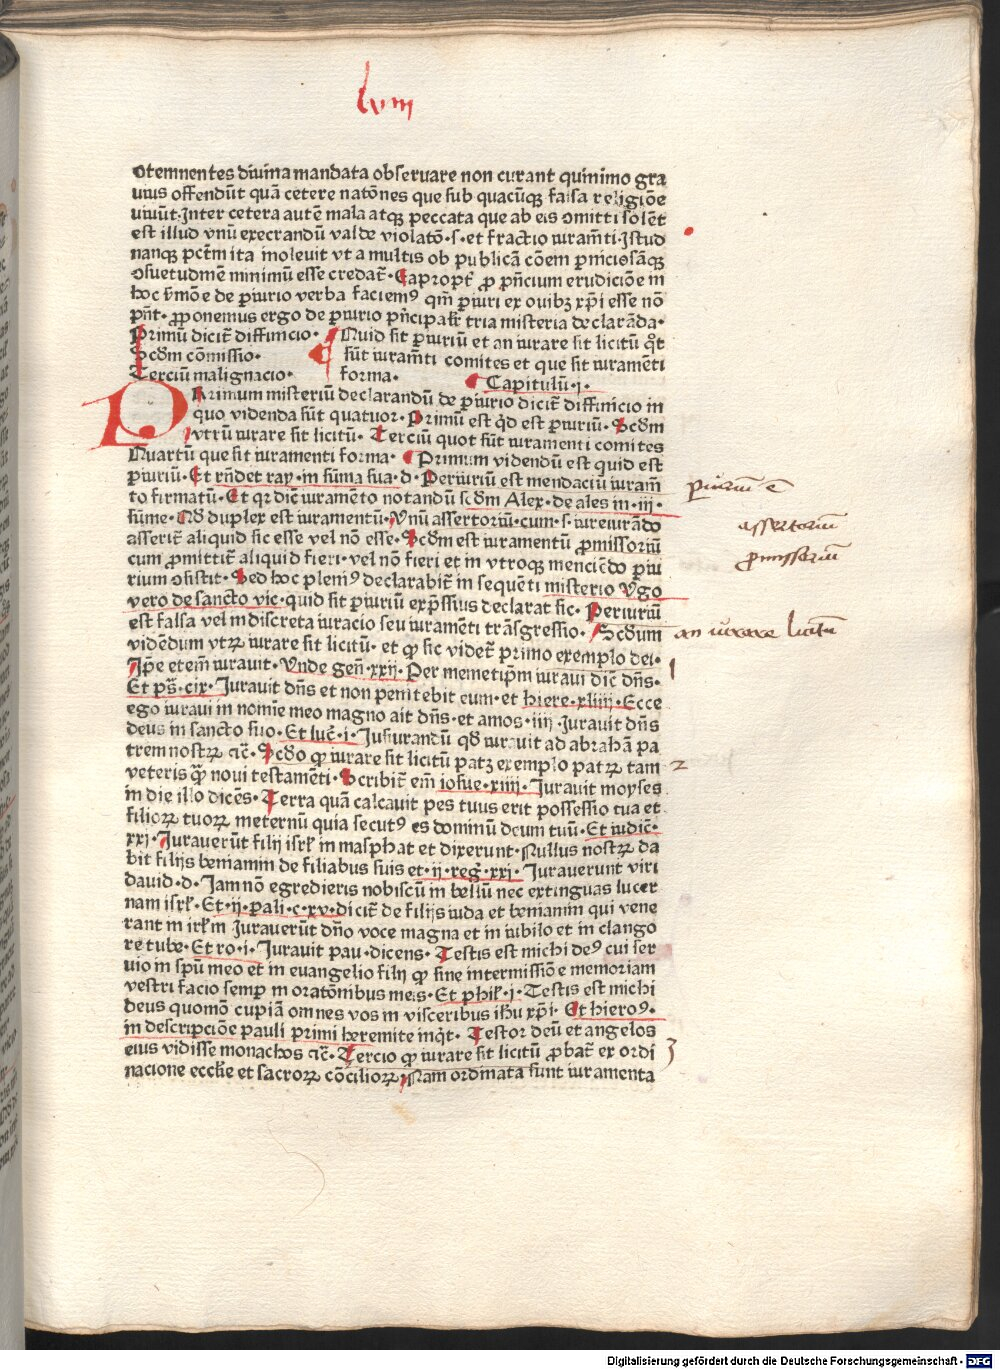 lviii
ɔtemnentes divina mandata observare non curant quinimo gra
vius offendūt quā cetere natōnes que sub quacūqꝫ falsa religiōe
vivūt·Inter cetera autē mala atqꝫ peccata que ab eis ɔmitti solēt
est illud vnū execrandū valde violatō·s·et fractio iuramīti·Istud
nanqꝫ pctm̄ ita inolevit vt a multis ob publicā cōem pniciosāqꝫ
ɔsuetudinē minimū esse credat̄·Eapropt̄ ꝓ pn̄cium erudicióe in
hoc s̄moe de piurio verba faciemꝰ qm̄ piuri ex ovibꝫ xp̄i esse nō
pn̄t·ꝓponemus ergo de piurio pn̄cipalr̄ tria misteria declarāda·
Primū dicit̄ diffinicio·
Scd̄m cōmissio·
Terciū malignacio·
Quid sit piuriū et an iurare sit licitū qt̄
sūt iuramīti comites et que sit iuramēti
forma·
Capitulū·i·
PRimum misteriū declarandū de piurio dicit̄ diffinicio in
quo videnda sūt quatuor·Primū est qd̄ est piuriū·Scd̄m
vtrū iurare sit licitū·Terciū quot sūt iuramenti comites
Quartū que sit iuramenti forma·Primum videndū est quid est
piuriū·Et rn̄det ray·in sūma sua·d·Periuriū est mendaciū iuram̄
to firmatū·Et qꝛ dic̄ iuramēto notandū scd̄m Alex·de ales in·iii·
sūme·Qd̄ duplex est iuramentū·Vnū assertoriū·cum·s·iureiurādo
asserit̄ aliquid sic esse vel nō esse·Scd̄m est iuramentū ꝓmissoriū
cum ꝓmittit̄ aliquid fieri·vel nō fieri et in vtroqꝫ menciēdo piu
rium ɔsistit·Sed hoc pleniꝰ declarabit̄ in sequēti misterio Vgo
vero de sancto vic·quid sit piuriū exp̄ssius declarat sic·Periuriū
est falsa vel indiscreta iuracio seu iuramēti trāsgressio·Scd̄um
vidēdum vtꝝ iurare sit licitū·et ꝙ sic videt̄ primo exemplo dei·
Ip̄e etem̄ iuravit·Vnde gen̄·xxij·Per memetip̄m iuravi dic̄ dn̄s·
Et ps̄·cix·Iuravit dn̄s et non penitebit eum·et hiere·xliiij·Ecce
ego iuravi in nomīe meo magno ait dn̄s·et amos·iiij·Iuravit dn̄s
deus in sancto suo·Et luc̄·i·Iusiurandū qd̄ iuravit ad abrahā pa
trem nostꝝ ꝛc̄·Scd̄o ꝙ iurare sit licitū patꝫ exemplo patꝝ tam
veteris qꝫ noui testamēti·Scribit̄ em̄ iosue·xiiij·Iuravit moyses
in die illo dicēs·Terra quā calcavit pes tuus erit possessio tua et
filioꝝ tuoꝝ ineternū quia secutꝰ es dominū deum tuū·Et iudic̄·
xxi·Iuraverūt filij isrl̄ in masphat et dixerunt·Nullus nostꝝ da
bit filijs beniamin de filiabus suis et·ij·reḡ·xxi·Iuraverunt viri
david·d·Iam nō egredieris nobiscū in bellū nec extinguas lucer
nam isrl̄·Et·ij·pali·c·xv·dicit̄ de filijs iuda et beniamin qui vene
rant in irl̄m Iuraverūt dn̄o voce magna et in iubilo et in clango
re tube·Et ro·i·Iuravit pau·dicens·Testis est michi deꝰ cui ser
vio in spū meo et in euangelio filij ꝙ sine intermissiōe memoriam
vestri facio semp in oratōnibus meis·Et phil̄·i·Testis est michi
deus quomō cupiā omnes vos in visceribus ihu xp̄i·Et hieroꝰ·
in descripcióe pauli primi heremite inqt̄·Testor deū et angelos
eius vidisse monachos ꝛc̄·Tercio ꝙ iurare sit licitū ꝓbat̄ ex ordi
nacione eccl̄ie et sacroꝝ cōcilioꝝ·Nam ordinata sunt iuramenta
piuriū ē
assertoriū
ꝓmissoriū
an iurare licitū
1
2
3
Digitalisierung gefördert durch die Deutsche Forschungsgemeinschaft - DFG